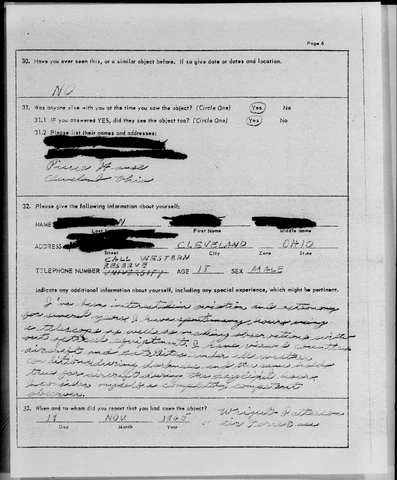 Page 6
30. Have you ever seen this, or a similar object before. If so give date or dates and location.
NO
31. Was anyone else with you at the time you saw the object? (Circle One) Yes No
31.1 IF you answered YES, did they see the object too? (Circle One) Yes No
31.2 Please list their names and addresses:
Pierce House
Cleveland Ohio
32. Please give the following information about yourself:
NAME
Last Name First Name Middle Name
ADDRESS CLEVELAND OHIO
Street City Zone State
CALL WESTERN
RESERVE
TELEPHONE NUMBER UNIVERSITY AGE 18 SEX MALE
Indicate any additional information about yourself, including any special experience, which might be pertinent.
I've been interested in aviation and astronomy
for several years. I have spent many hours using
a telescope as well as making observations with-
out optical equiptment. I have viewed countless
aircraft and satellites under all weather
conditions during darkness and the same holds
true for aircraft during the daylight hours.
I consider myself a completely competent
observer.
33. When and to whom did you report that you had seen the object?
19 NOV 1965
Day Month Year
Wright-Patterson
Air Force Base